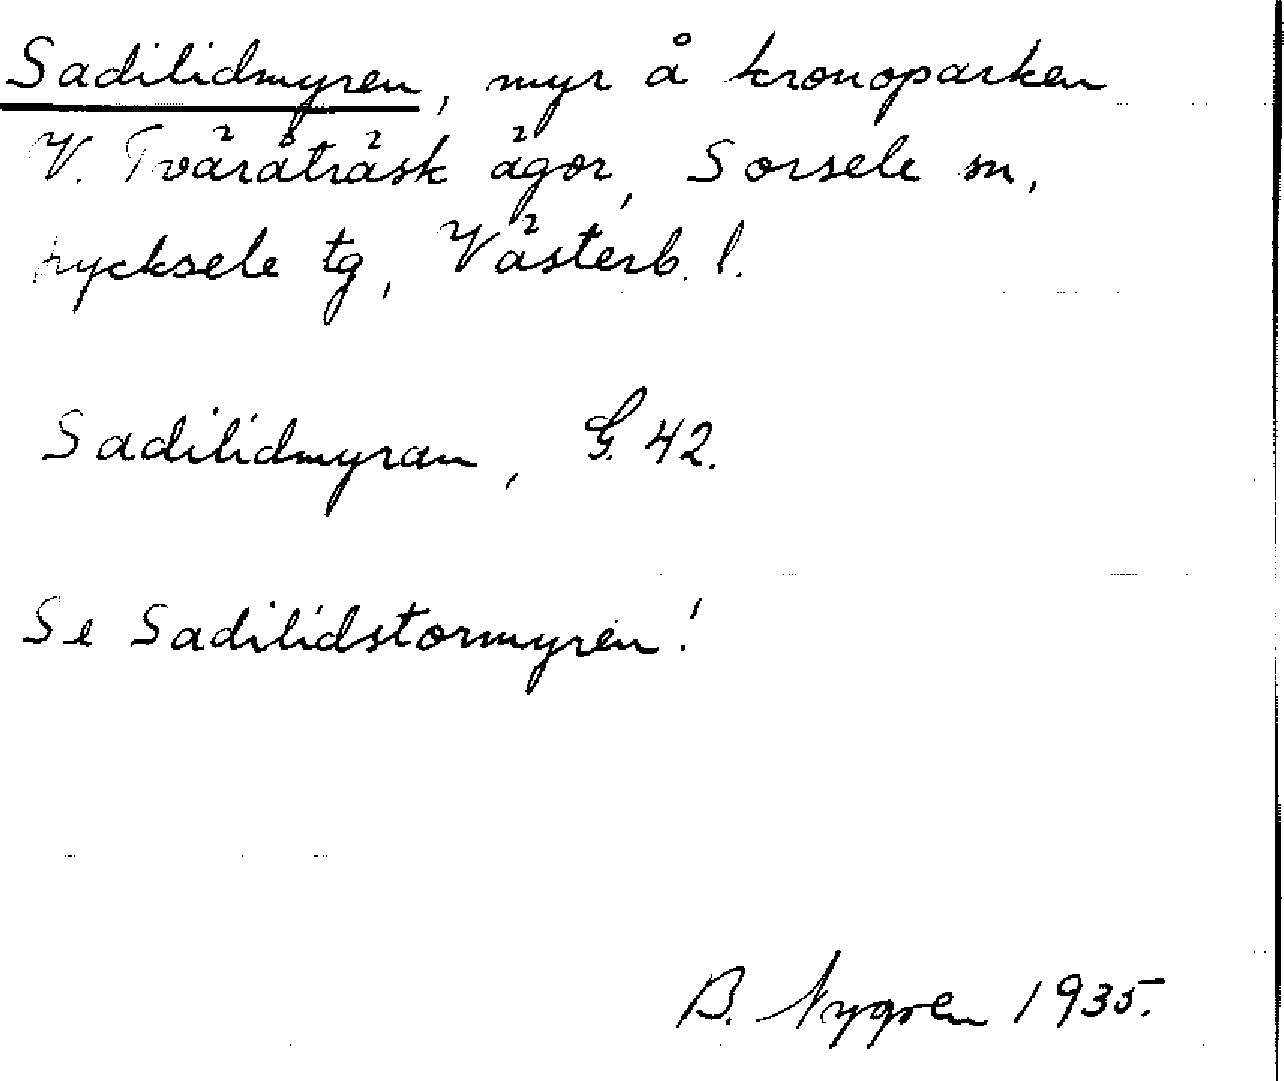 Sadilidmyren, myr å kronoparken
V. Tväråträsk ägor, Sorsele sn,
Lycksele tg, Västerb. l.
Sadilidmyran, G. 42.
Se Sadilidstormyren!
B. Nygren 1935.